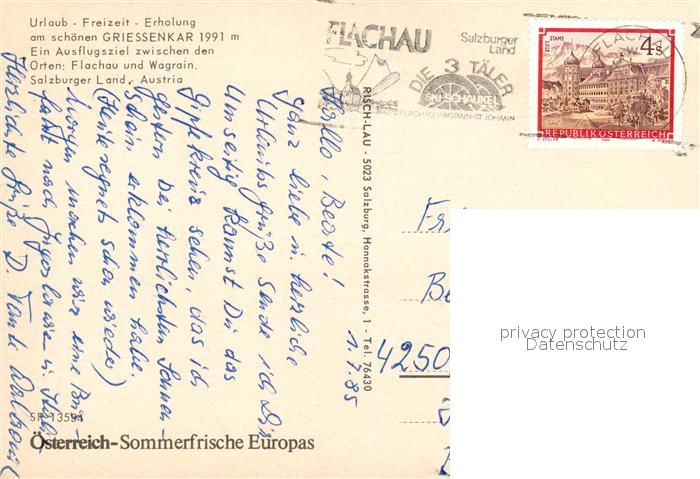 Urlaub - Freizeit - Erholung
am schönen GRIESSENKAR 1991 m
Ein Ausflugsziel zwischen den
Orten: Flachau und Wagrain,
Salzburger Land, Austria
FLACHAU
Salzburger
Land
DIE 3 TÄLER
SKI-SCHAUKEL
FLACHAU-WAGRAIN-ST JOHANN
FLACHAU
STIFT STAMS
4 S
REPUBLIK ÖSTERREICH
RISCH-LAU - 5023 Salzburg, Hannakstrasse, 1 - Tel. 76430
1.7.85
Hallo, Beate!
Ganz liebe u. herzliche
Urlaubsgrüße sende ich Dir
Umseitig kannst Du das
Gipfelkreuz sehen, das ich
gestern bei herrlichsten Sonnen-
schein erklommen habe.
(Heute regnet's schon wieder)
Morgen machen wir eine
fahrt nach Jugoslawien u.
Herzlichste Grüße D. Tante
4250
SR 13594
Österreich-Sommerfrische Europas
privacy protection
Datenschutz